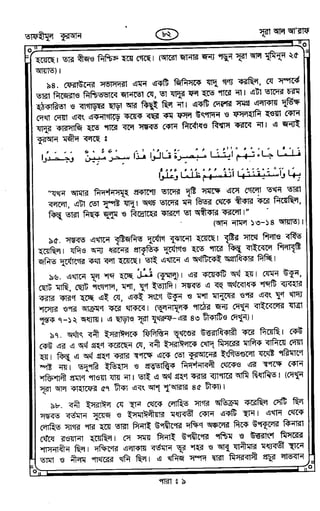 তাফহীমুল কুরআন
৮২
সূরা আল আ'রাফ
হয়েছে। তার বীজও নিশ্চিহ্ন হয়ে গেছে। (আরো জানার জন্য পড়ুন সূরা আল মুমিনুন ২৫
আয়াত)।
৯৪. ফেরাউনের সভাসদরা এমন একটি জিনিসকে যাদু গণ্য করছিল, যে সম্পর্কে
তারা নিজেরাও নিশ্চিতভাবে জানতো যে, তা যাদুর ফল হতে পারে না। এটা তাদের চরম
হঠকারিতা ও বাগাড়ম্বর ছাড়া আর কিছুই ছিল না। একটি দেশের সমগ্র এলাকায় দুর্ভিক্ষ
দেখা দেয়া এবং একনাগাড়ে কয়েক বছর কম ফসল উৎপাদন ও ফসলহানি হওয়া কোন
যাদুর কারসাজি হতে পারে বলে সম্ভবত কোন নির্বোধও বিশ্বাস করবে না। এ জন্যই
কুরআন মজীদ বলছে :
فَلَمَّا جَاءَتْهُمْ آيٰتُنَا مُبْصِرَةً قَالُوا هٰذَا سِحْرٌ مُّبِينٌ ۝ وَجَحَدُوا
بِهَا وَاسْتَيْقَنَتْهَا أَنْفُسُهُمْ ظُلْمًا وَّعُلُوًّا
"যখন আমার নিদর্শনসমূহ প্রকাশ্যে তাদের দৃষ্টি সমক্ষে এসে গেলো তখন তারা
বললো, এটা তো সুস্পষ্ট যাদু। অথচ তাদের মন ভিতর থেকে স্বীকার করে নিয়েছিল,
কিন্তু তারা নিছক জুলুম ও বিদ্রোহের কারণে তা অস্বীকার করলো।"
(আন নামল ১৩-১৪ আয়াত)।
৯৫. সম্ভবত এখানে বৃষ্টিজনিত দুর্যোগ বুঝানো হয়েছে। বৃষ্টির সাথে শিলাও বর্ষিত
হয়েছিল। যদিও অন্য ধরনের প্রাকৃতিক দুর্যোগও হতে পারে কিন্তু বাইবেলে শিলাবৃষ্টি
জনিত দুর্যোগের কথা বলা হয়েছে। তাই এখানে এ অর্থটিকেই অগ্রাধিকার দিচ্ছি।
৯৬. এখানে মূল শব্দ হচ্ছে قُمَّلَ (কুম্মালু)। এর কয়েকটি অর্থ হয়। যেমন উকুন,
ছোট মাছি, ছোট পংগপাল, মশা, ঘুণ ইত্যাদি। সম্ভবত এ বহু অর্থবোধক শব্দটি ব্যবহার
করার কারণ হচ্ছে এই যে, একই সংগে উকুন ও মশা মানুষের ওপর এবং ঘুণ খাদ্য
শস্যের ওপর আক্রমণ করে থাকবে। (তুলনামূলক পাঠের জন্য দেখুন বাইবেলের যাত্রা
পুস্তক ৭-১২ অধ্যায়। এ ছাড়াও সূরা যুখরুফ-এর ৪৩ টীকাটিও দেখুন)।
৯৭. অর্থাৎ বনী ইসরাঈলকে ফিলিস্তিন ভূখণ্ডের উত্তরাধিকারী করে দিয়েছি। কেউ
কেউ এর এ অর্থ গ্রহণ করেছেন যে, বনী ইসরাঈলকে খোদ মিসরের মালিক বানিয়ে দেয়া
হয়। কিন্তু এ অর্থ গ্রহণ করার স্বপক্ষে একে তো কুরআনের ইংগিতগুলো যথেষ্ট পরিমাণে
স্পষ্ট নয়। তদুপরি ইতিহাস ও প্রত্নতাত্ত্বিক নিদর্শনাবলী থেকেও এর স্বপক্ষে কোন
শক্তিশালী প্রমাণ পাওয়া যায় না। তাই এ অর্থ গ্রহণ করার ব্যাপারে আমি দ্বিধান্বিত। (দেখুন
সূরা আল কাহাফের ৫৭ টীকা এবং আশ্ শু'আরার ৪৫ টীকা)।
৯৮. বনী ইসরাঈল যে স্থান থেকে লোহিত সাগর অতিক্রম করেছিল সেটি ছিল
সম্ভবত বর্তমান সুয়েজ ও ইসমাঈলীয়ার মধ্যবর্তী কোন একটি স্থান। এখান থেকে
লোহিত সাগর পার হয়ে তারা সিনাই উপদ্বীপের দক্ষিণ অঞ্চলের দিকে উপকূলের কিনারা
ঘেঁষে রওয়ানা হয়েছিল। সে সময় সিনাই উপদ্বীপের পশ্চিম ও উত্তরাংশ মিসরের
শাসনাধীন ছিল। দক্ষিণের এলাকায় বর্তমান তূর শহর ও আবু যানীমার মধ্যবর্তী স্থানে
তামা ও নীলম পাথরের খনি ছিল। এ খনিজ সম্পদ দ্বারা মিসরবাসী প্রচুর লাভবান
পারা : ৯